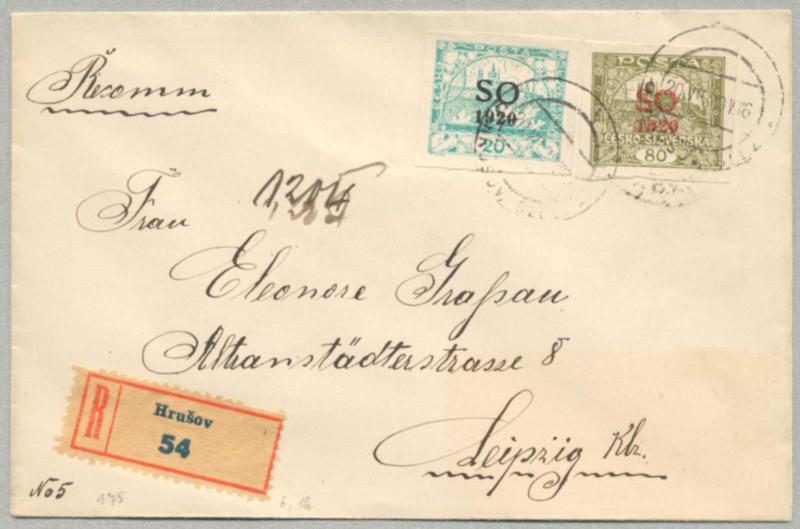 Rekomm
POSTA
ČESKO
SO
1920
20
POSTA
SO
1920
ČESKO-SLOVENSKA
80
1,205
Frau
Eleonore Graßau
Altranstädterstrasse 8
Leipzig Klz.
R
Hrušov
54
No 5
175
6, 16